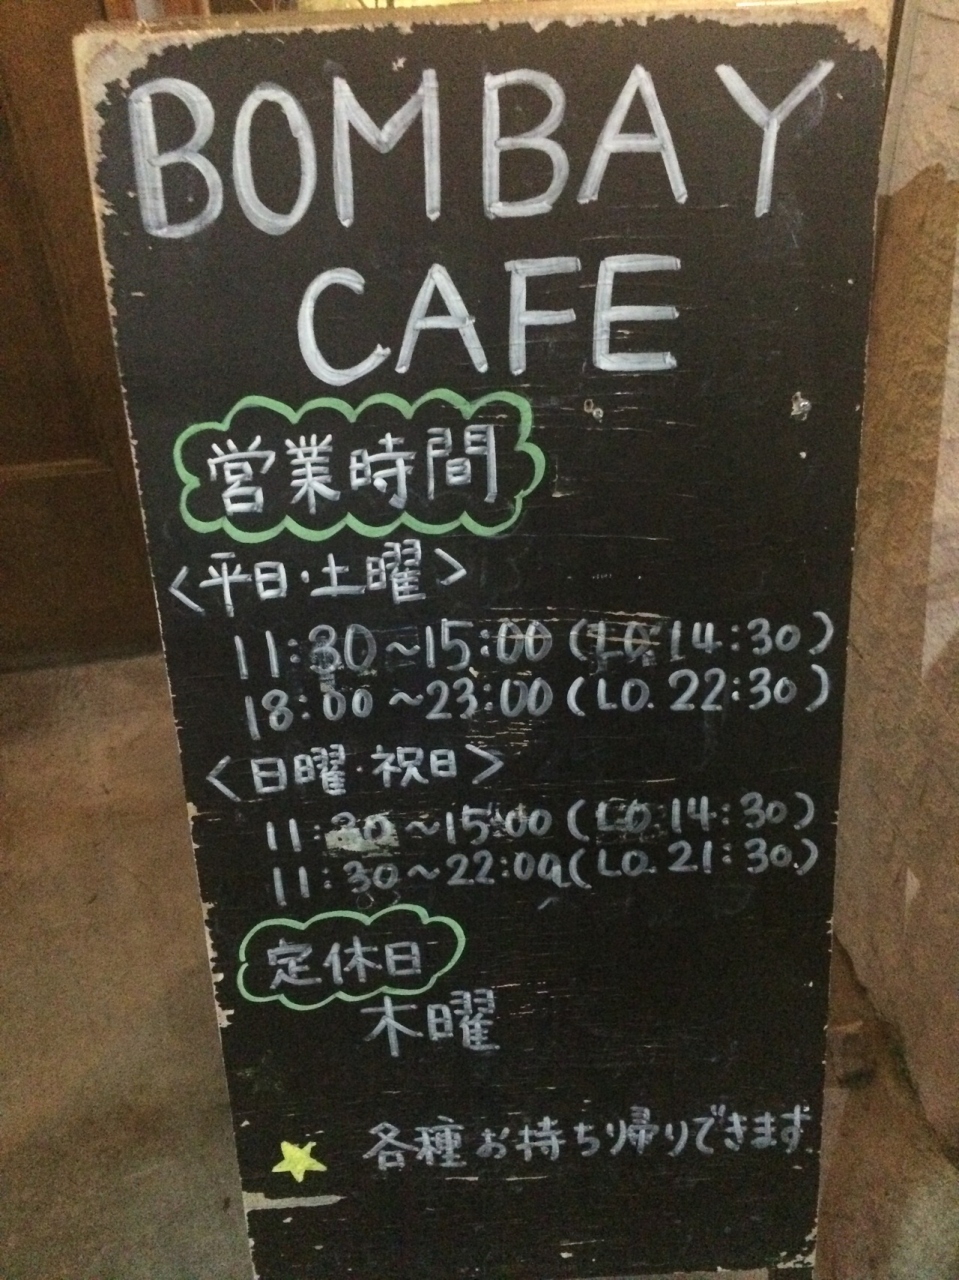 BOMBAY
CAFE
営業時間
<平日・土曜>
11:30~15:00 (LO.14:30)
18:00~23:00 (LO.22:30)
<日曜・祝日>
11:30~15:00 (LO.14:30)
11:30~22:00 (LO.21:30.)
定休日
木曜
各種お持ち帰りできます.